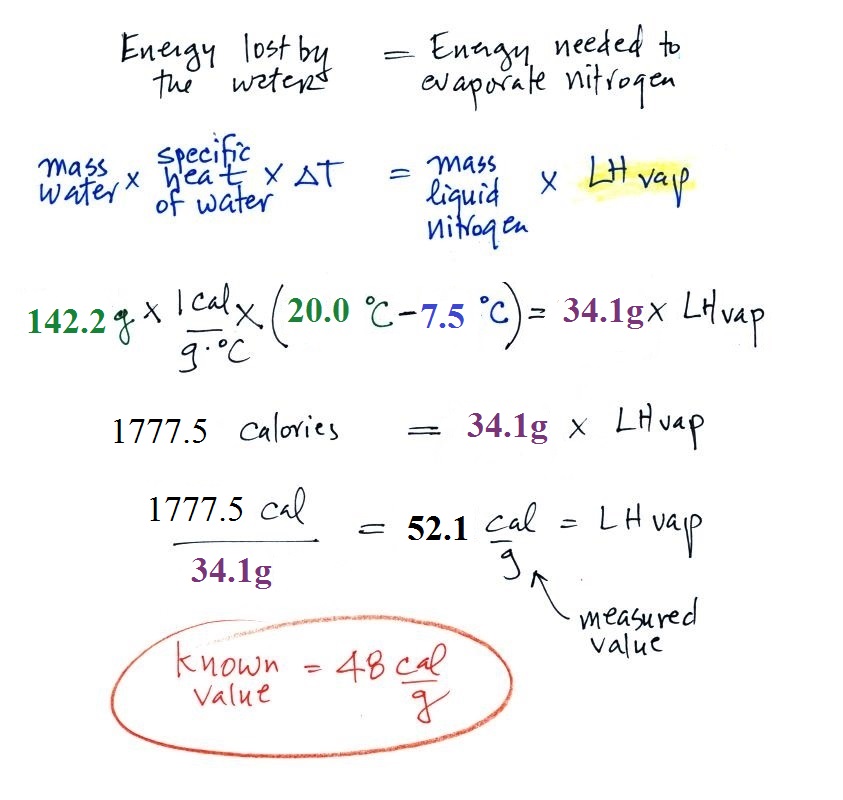 Energy lost by the water = Energy needed to evaporate nitrogen
mass water x specific heat of water x ΔT = mass liquid nitrogen x LH vap
142.2 g x 1 cal/g·°C x (20.0 °C - 7.5 °C) = 34.1g x LH vap
1777.5 calories = 34.1g x LH vap
1777.5 cal / 34.1g = 52.1 cal/g = LH vap
measured value
known value = 48 cal/g